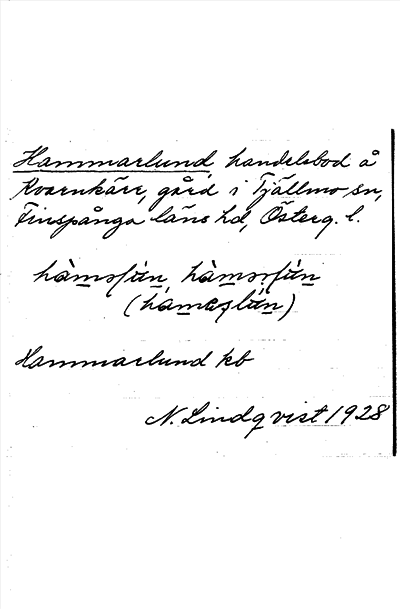 Hammarlund, handelsbod å
Kvarnkärr, gård i Tjällmo sn,
Finspånga läns hd, Österg. l.
Hammarlund kb
N. Lindqvist 1928